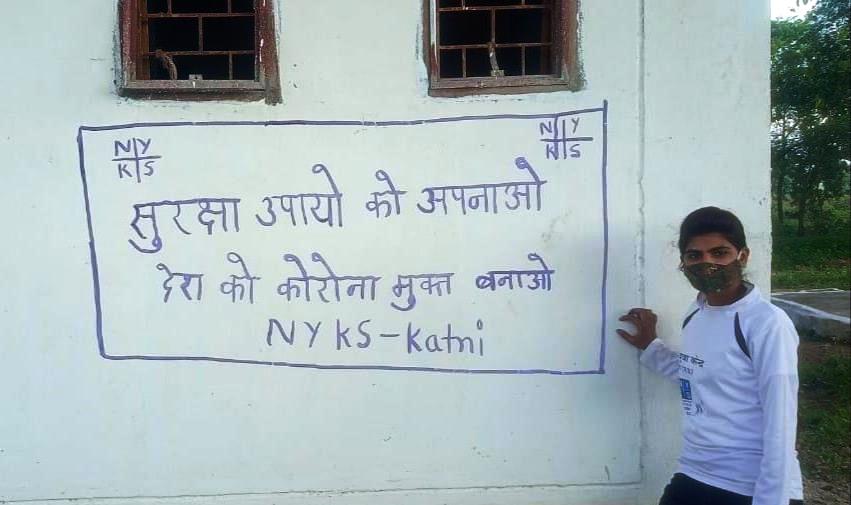 N Y
K S
N Y
K S
सुरक्षा उपायो को अपनाओ
देश को कोरोना मुक्त बनाओ
NYKS-Katni